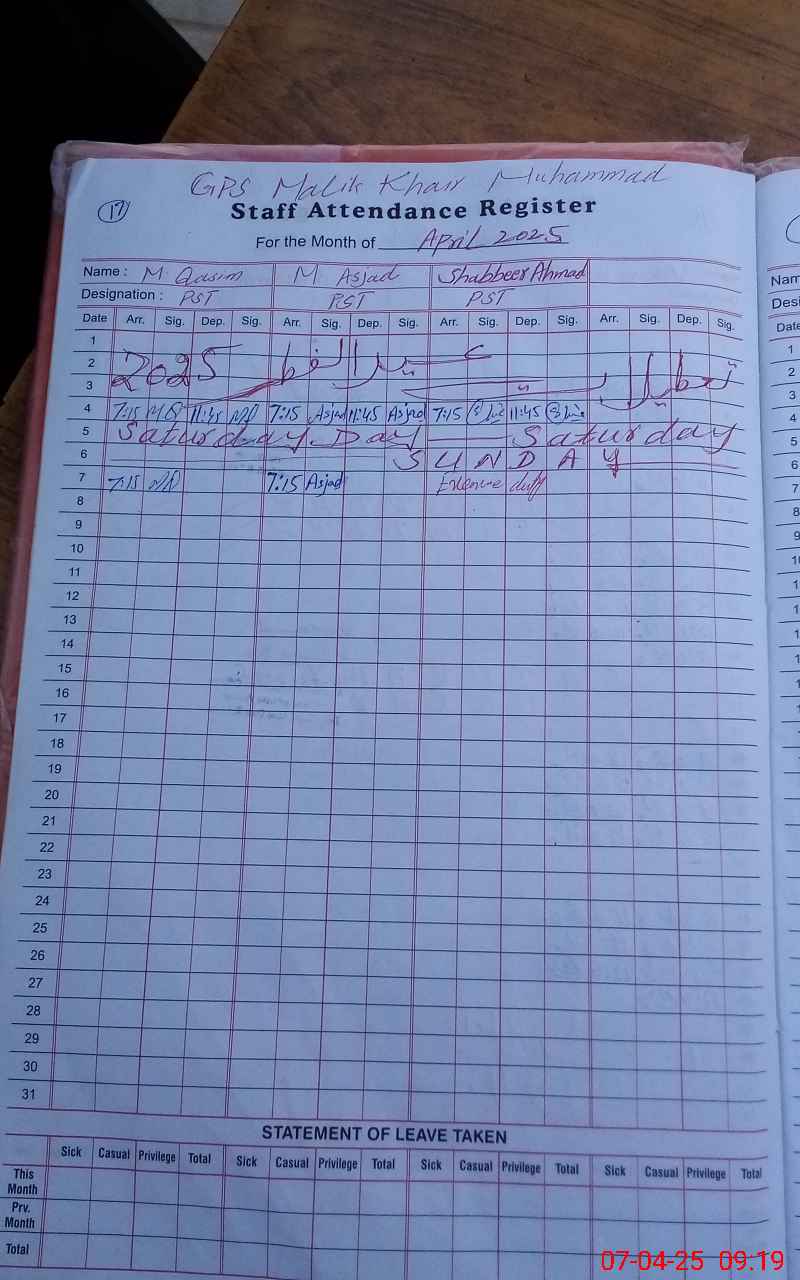 GPS Malik Khair Muhammad
17
Staff Attendance Register
For the Month of April 2025
Name : M Qasim M Asjad Shabbeer Ahmad
Designation : PST PST PST
Date Arr. Sig. Dep. Sig. Arr. Sig. Dep. Sig. Arr. Sig. Dep. Sig. Arr. Sig. Dep. Sig.
1
2 تعطیلات عید الفطر 2025
3
4 7:15 11:45 7:15 Asjad 11:45 Asjad 7:15 11:45
5 Saturday Day Saturday
6 SUNDAY
7 7:15 7:15 Asjad duty
8
9
10
11
12
13
14
15
16
17
18
19
20
21
22
23
24
25
26
27
28
29
30
31
STATEMENT OF LEAVE TAKEN
Sick Casual Privilege Total Sick Casual Privilege Total Sick Casual Privilege Total Sick Casual Privilege Total
This Month
Prv. Month
Total
07-04-25 09:19